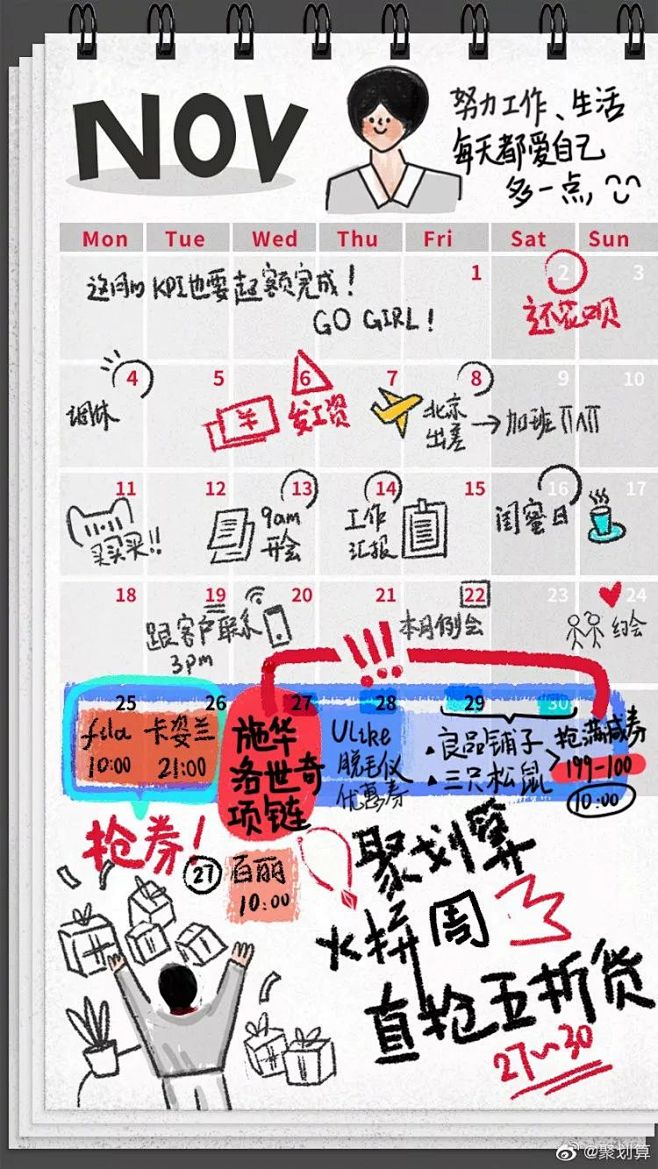 NOV
努力工作、生活
每天都爱自己
多一点,
Mon Tue Wed Thu Fri Sat Sun
1 2 3
这月的KPI也要超额完成!
GO GIRL!
还花呗
4 5 6 7 8 9 10
调休
¥
发工资
北京
出差
→加班
11 12 13 14 15 16 17
买买买!!
9am
开会
工作
汇报
闺蜜日
18 19 20 21 22 23 24
跟客户联系
3pm
本月例会
约会
!!!
25 26 27 28 29 30
fila
10:00
卡姿兰
21:00
施华
洛世奇
项链
Ulike
脱毛仪
优惠券
良品铺子
三只松鼠
抢满减券
199-100
10:00
抢券!
27
百丽
10:00
聚划算
火拼周
直抢五折货
27~30
@聚划算